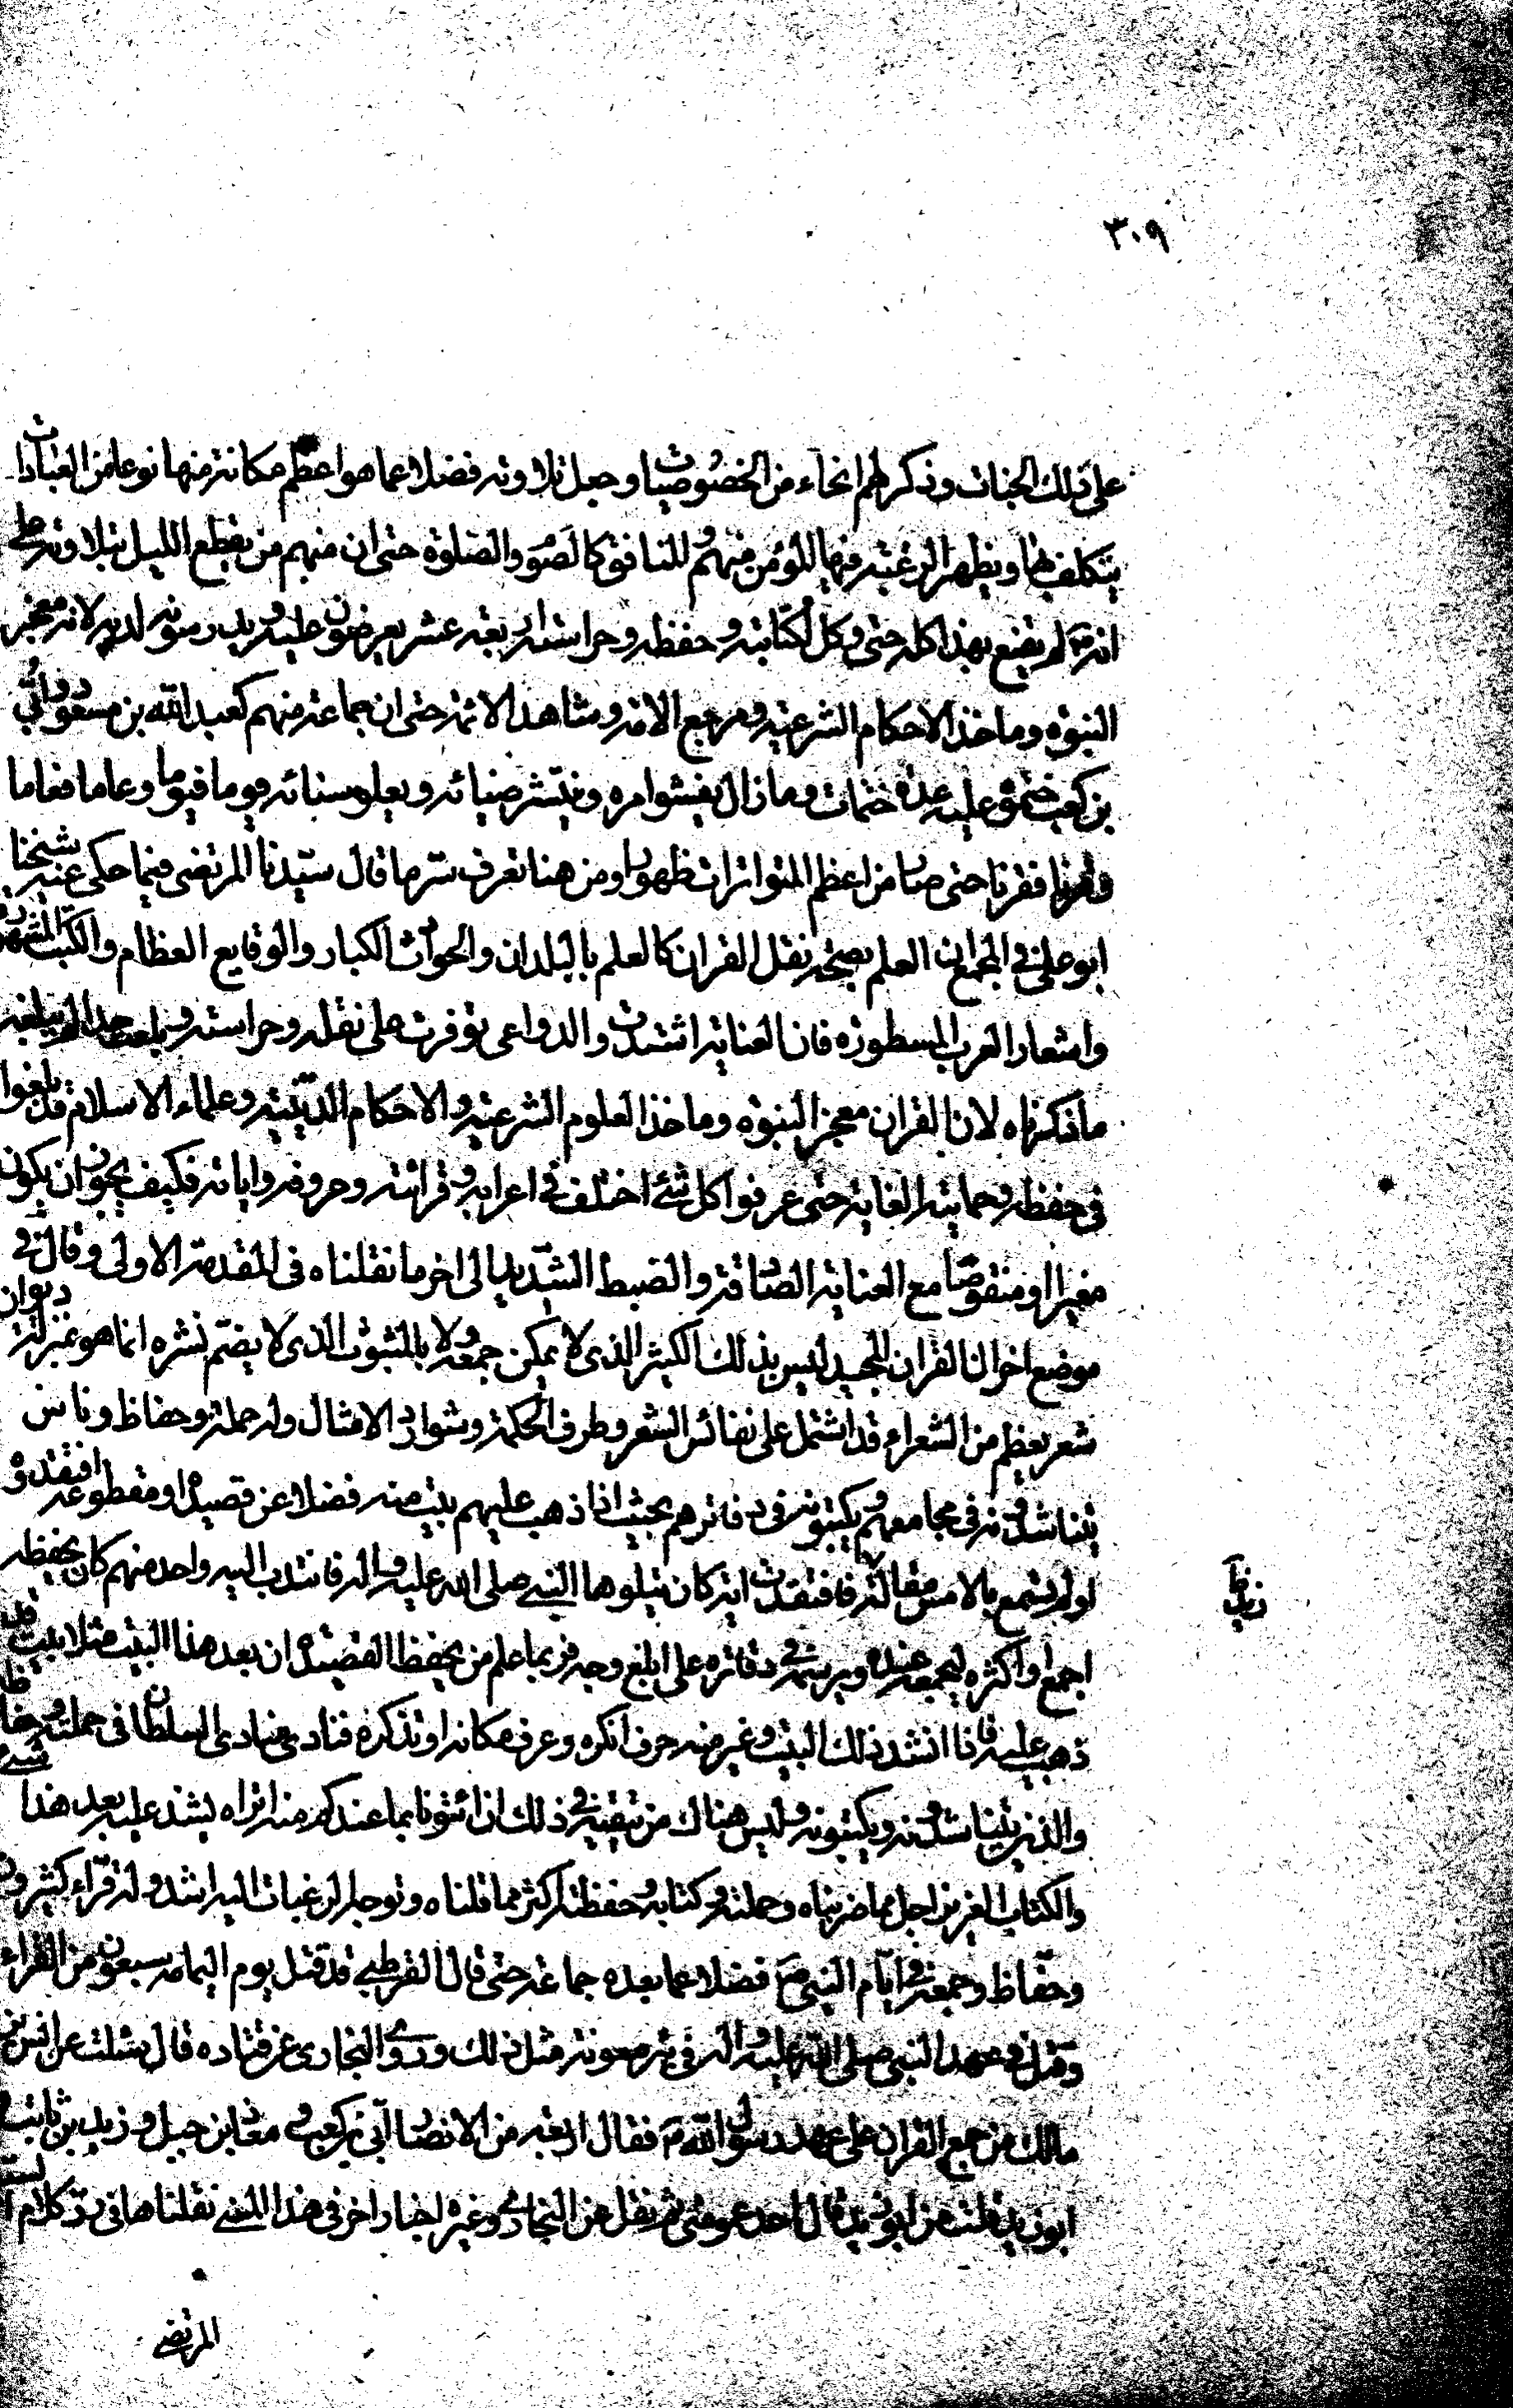 ٣٠٩
على ذلك الجنات وذكر لهم انحاء من الخصوصيات وجعل تلاوته فضلا عما هو اعظم مكانة منها نوعا من العبادات
يتكلف لها ويظهر الرغبة فيها المؤمن منهم والمنافق كالصوم والصلوة حتى ان منهم من يقطع الليل بتلاوته
انه لم يقنع بهذا كله حتى وكل لكتابته وحفظه وحراسته اربعة عشر يعرضون عليه ويدرسونه لديه لانه معجز
النبوة وماخذ الاحكام الشرعية ومرجع الامة ومشاهد الائمة حتى ان جماعة منهم كعبد الله بن مسعود وابي
بن كعب ختموا عليه عدة ختمات وما زال يفشوا مره وينتشر ضيائه ويعلو سنائه يوما فيوما وعاما فعاما
وقرنا فقرنا حتى صار من اعظم المتواترات ظهورا ومن هنا تعرف سر ما قال سيدنا المرتضى فيما حكى عنه شيخنا
ابو علي في المجمع ان العلم بصحة نقل القران كالعلم بالبلدان والحوادث الكبار والوقايع العظام والكتب المشهورة
واشعار العرب المسطورة فان العناية اشتدت والدواعي توفرت على نقله وحراسته وبلغت حدا لم يبلغه
ما ذكرناه لان القران معجز النبوة وماخذ العلوم الشرعية والاحكام الدينية وعلماء الاسلام قد بلغوا
في حفظه وحمايته الغاية حتى عرفوا كل شئ اختلف في اعرابه وقرائته وحروفه واياته فكيف يجوز ان يكون
مغيرا او منقوصا مع العناية الصادقة والضبط الشديد الى اخر ما نقلناه في المقدمة الاولى وقال في
موضع اخر ان القران المجيد ليس بذلك الكثير الذي لا يمكن جمعه ولا بالمثبوت الذي لا يضم نشره انما هو بمنزلة ديوان
شعر بعظيم من الشعراء قد اشتمل على نفائس الشعر وطرف الحكمة وشوارد الامثال وله حملة وحفاظ وناس
يتناشدونه في مجامعهم ويكتبونه في دفاترهم بحيث اذا ذهب عليهم بيت منه فضلا عن قصيدة او مقطوعة افتقدوه
اولم يسمع بالامس مقالة فافتقدت اية كان يتلوها النبي صلى الله عليه واله فانتدب اليه واحد منهم كان يحفظه
اجمع او اكثره ليجمع عنده ويرسمه في دفاتره على ابلغ وجه فربما علم من يحفظ القصيدة ان بعد هذا البيت مثلا بيت قد
ذهب عليه فاذا انشد ذلك البيت وغير منه حرف انكره وعرف مكانه او تذكره فنادى منادى السلطان في حملته وحفاظه
والذين يتناشدونه ويكتبونه وليس هناك من تبقية في ذلك ان ائتونا بما عندكم منه اتراه يشذ عليه بعد هذا شئ
والكتاب العزيز اجل مما ضربناه وحملته وكتابه وحفظته اكثر مما قلناه وتوجه الرغبات اليه اشد وله قراء كثيرون
وحفاظ وجمعه في ايام النبي ص فضلا عما بعده جماعة حتى قال القرطبي قد قتل يوم اليمامة سبعون من القراء
وقتل في عهد النبي صلى الله عليه واله في بئر معونة مثل ذلك وروى البخاري عن قتادة قال سئلت عن انس بن
مالك من جمع القران على عهد رسول الله ص فقال اربعة من الانصار ابي بن كعب ومعاذ بن جبل وزيد بن ثابت و
ابو زيد قلت من ابو زيد قال احد عمومتي ثم نقل عن البخاري وغيره اخبار اخر في هذا المعنى نقلناها في رد كلام
المرتضى